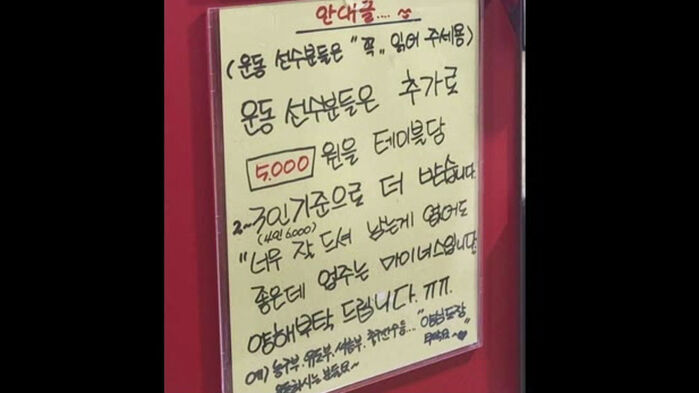 안내글....
(운동 선수분들은 "꼭" 읽어 주세용)
운동 선수분들은 추가로
5.000 원을 테이블당
2~3인기준으로 더 받습니다.
(4인 6.000)
"너무 잘 드셔 남는게 없어도
좋은데 업주는 마이너스입니다
양해부탁 드립니다. ㅠㅠ.
예) 농구부.유도부.씨름부.축구선수등... "양심도장
운동하시는 분들요~